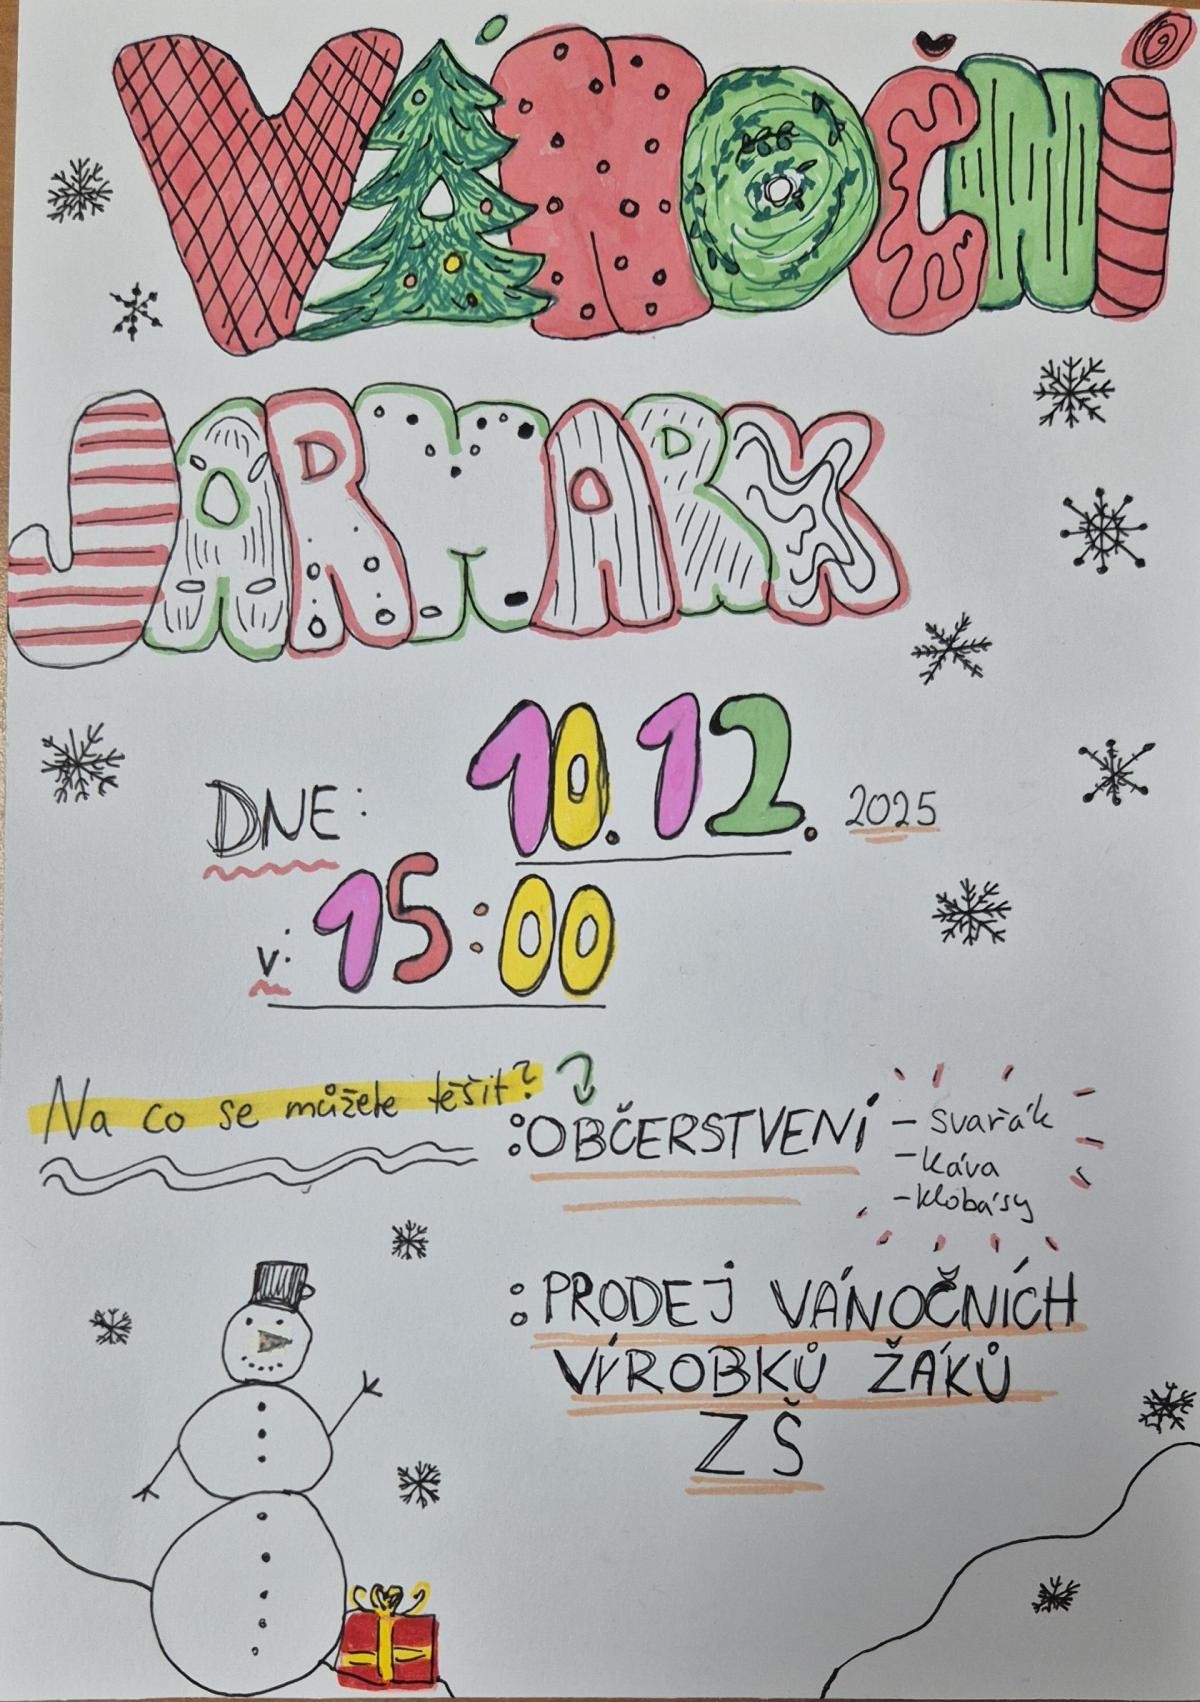 VÁNOČNÍ
JARMARK
DNE: 10.12. 2025
v: 15:00
Na co se můžete těšit?
:OBČERSTVENÍ
- svařák
- káva
- klobásy
:PRODEJ VÁNOČNÍCH
VÍROBKŮ ŽÁKŮ
ZŠ